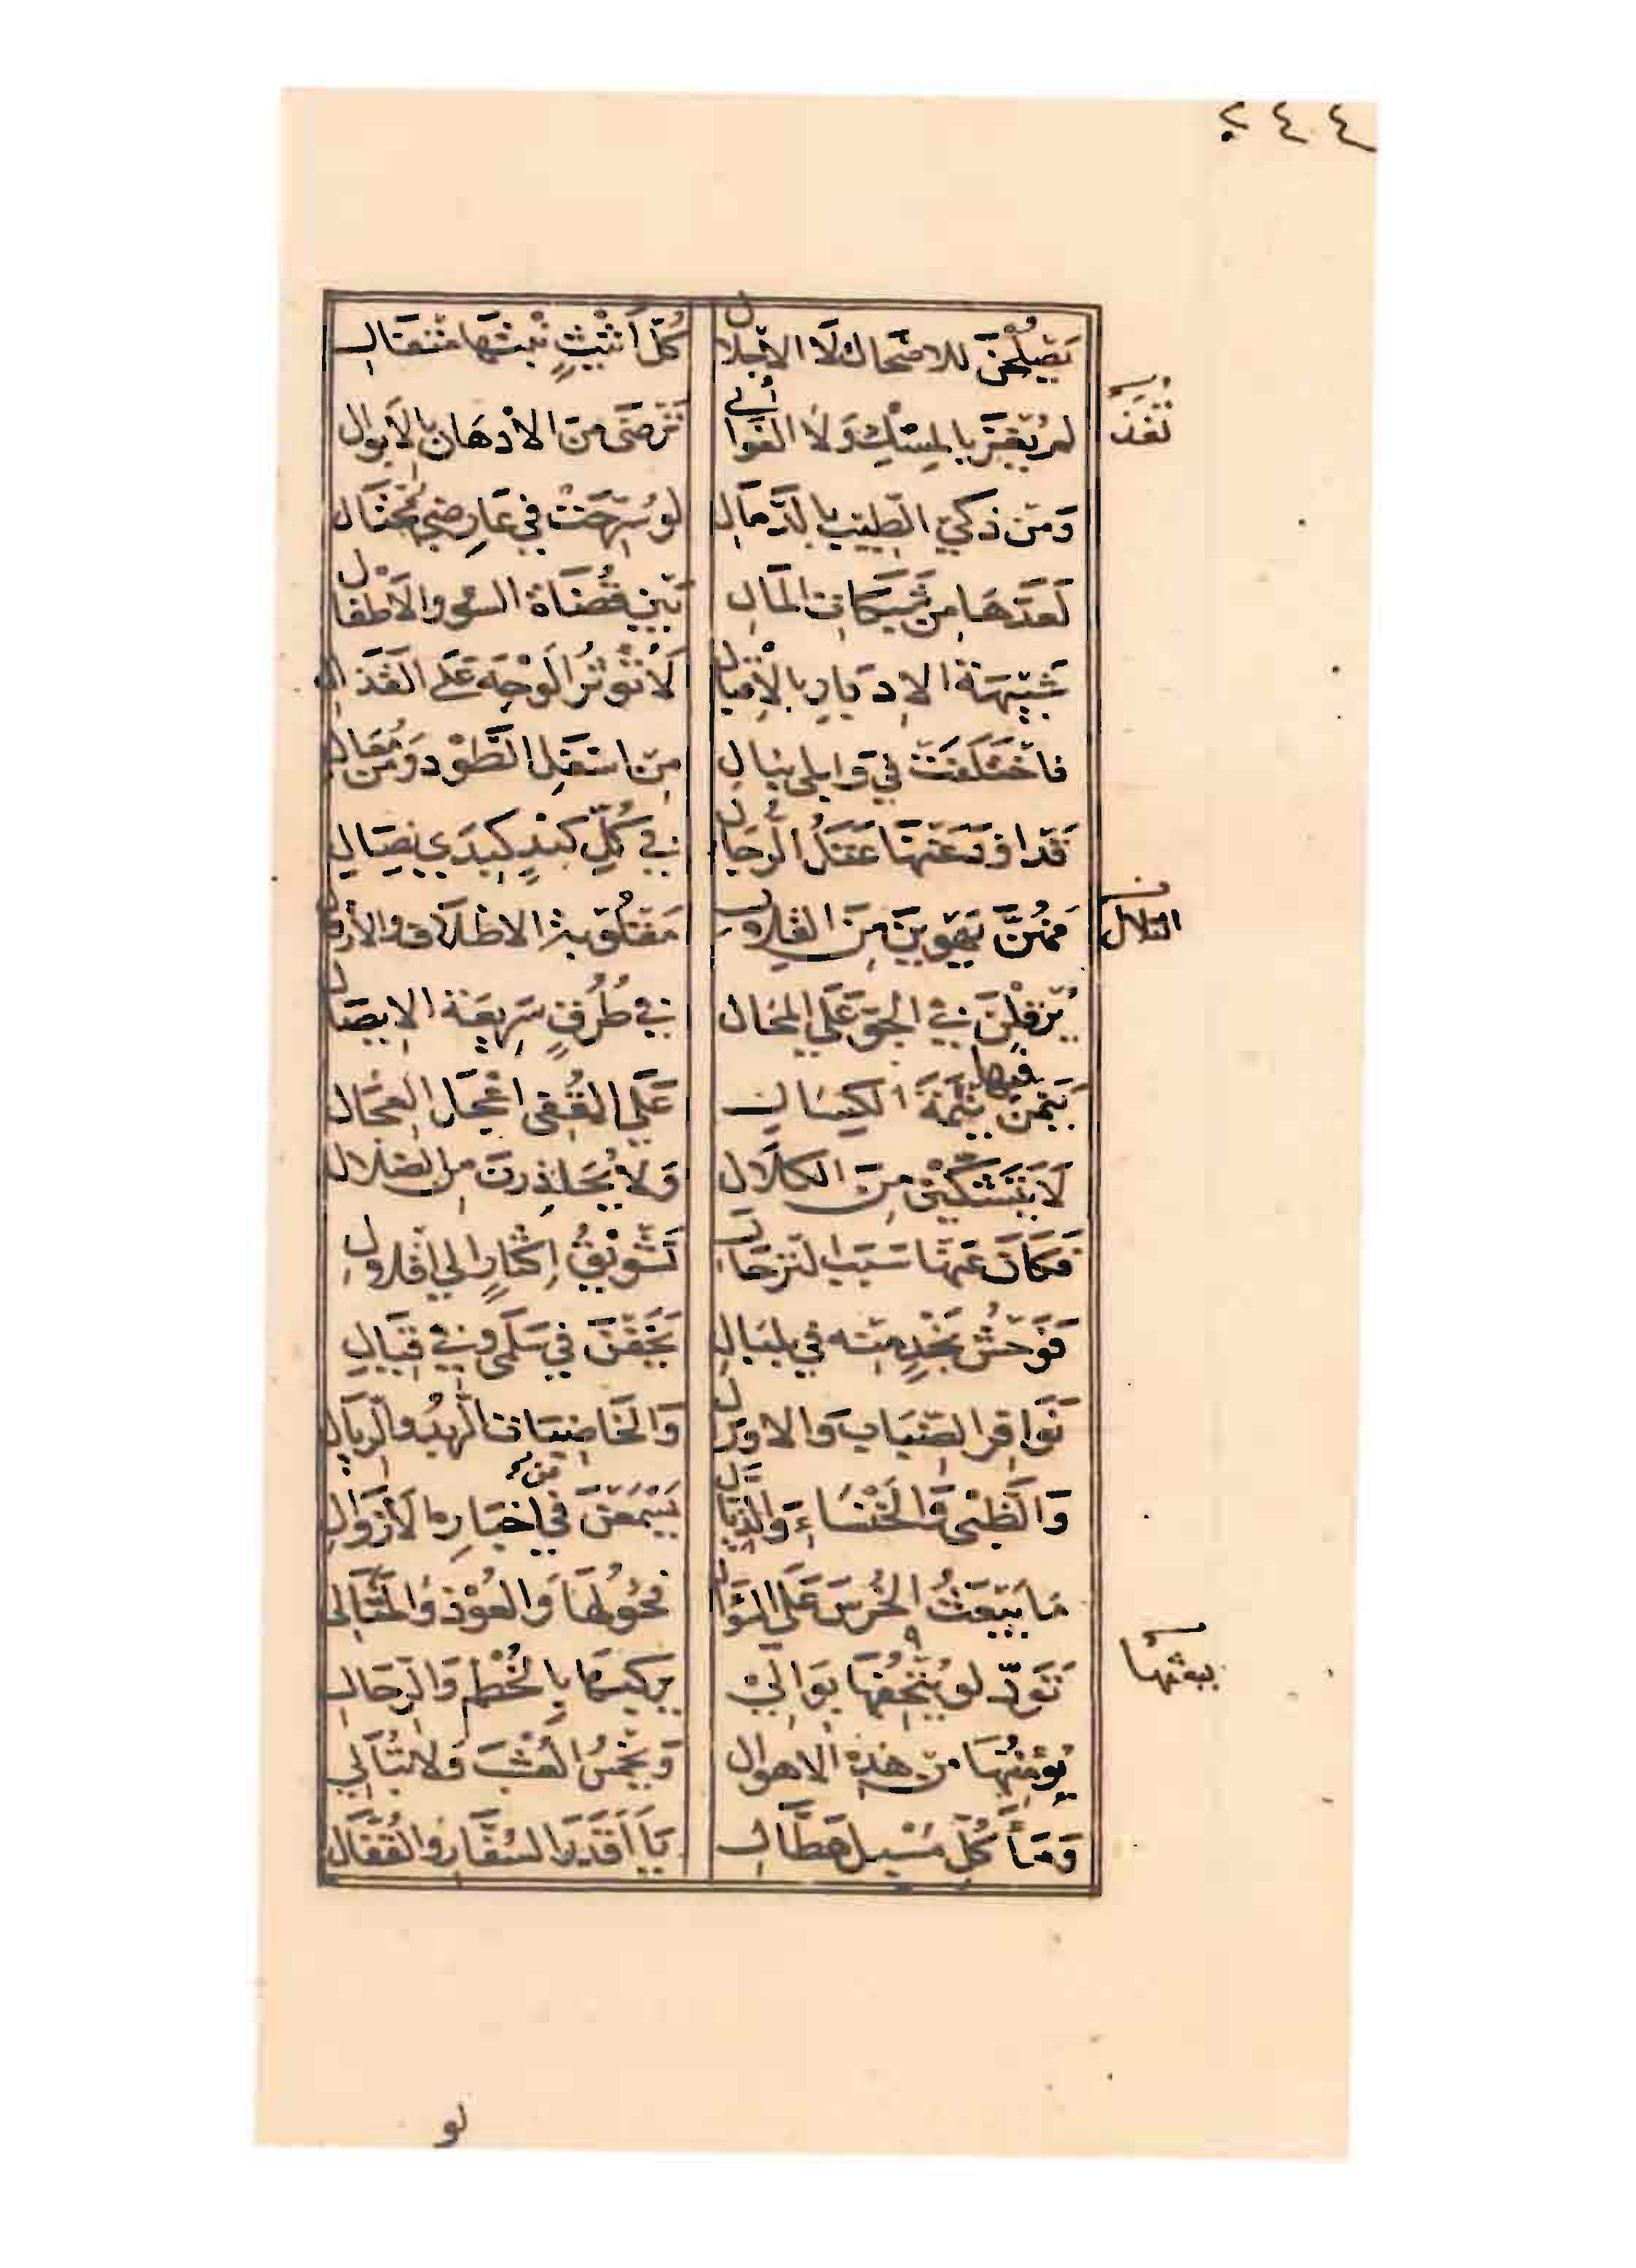 ٢٤٤
يَصْلُحْنَ للاضحاك لَا الاجلال كُلّ أَثيْثٍ نَبْتُها مَتفَال
تُغْذَ
لم يُغْذَ بالمِسْكِ وَلَا الغَوالي تَرْضَى مِنَ الأدْهَان بالأبوال
وَمِن ذَكيّ الطّيب بالدَّمال لو سُرّحَتْ في عَارِضي مُحتَال
لَعَدّهَا مِن شَبَكات المَال بَيْن قُضَاة السُّوء والأطفال
شَبيهَة الإدبار بالإقبال لَا تُؤثِرُ الوَجْهَ عَلى القَذال
فاختَلَفَتْ في وَابِلَي نِبال مِن اسْفَلِ الطَّوْد ومِنْ مُعَال
قَد اودَعَتْهَا عَتَلُ الرّجَال في كُلّ كَبْدٍ كَبِدَي نِصَال
فَهُنَّ يَهْوِينَ مِنَ القِلال مَقْلُوبَة الاظْلاف والأرقال
التلال
يُرْقِلْنَ في الجَوّ عَلَى المحَال في طُرُقٍ سَرِيعَة الايصَال
يَنَمْنَ فيها نِيمَةَ الكسَال عَلَى القُفِي اعْجَل العِجَال
لَا يَتَشَكَّيْنَ مِنَ الكلَال وَلَا يُحَاذِرنَ مِن الضَلال
فَكَانَ عَنْهَا سَبَبَ التَرْحَال تَشْويْقُ إكْثَارٍ إلى إقلال
فَوَحْشُ نَجْدٍ مِنه في بلبَال يَخَفْنَ في سَلْمَى وفي قيَال
نَوافِر الضّبَاب وَالاورَال وَالخَاضِبَات الرُّبْد والرّيال
وَالظَبْي وَالخَنْسَاءِ وَالذَيَّال يَسْمَعْنَ في مِنْ اخبَاره الأزوَال
مَا يَبعَثُ الخُرْسَ عَلَى السُؤَال فحُولُهَا وَالعُوْذ وَالمَتَالي
يبعثها
تَوَدّ لو يُتْحِفُهَا بوَالي يركبُهَا بالخُطْمِ وَالرّحَال
يُؤمِنُهَا مِن هَذِهِ الأهوال وَيَخْمُسُ العُشْبَ وَلا تُبَالي
وَمَاءَ كُلّ مُسْبِلٍ هَطَّال يَا أَقْدَرَ السُفَّار والقُفَّال
لو